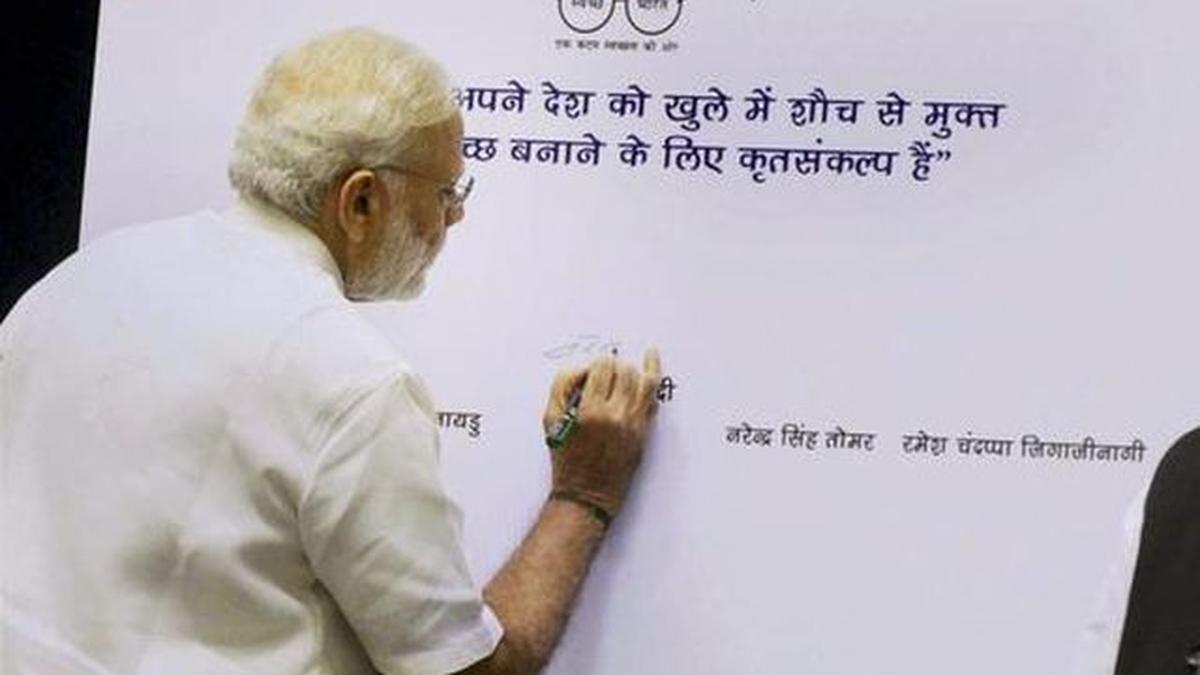 स्वच्छ भारत
एक कदम स्वच्छता की ओर
अपने देश को खुले में शौच से मुक्त
च्छ बनाने के लिए कृतसंकल्प हैं”
दी
नायडु
नरेन्द्र सिंह तोमर रमेश चंदप्पा जिगाजीनागी